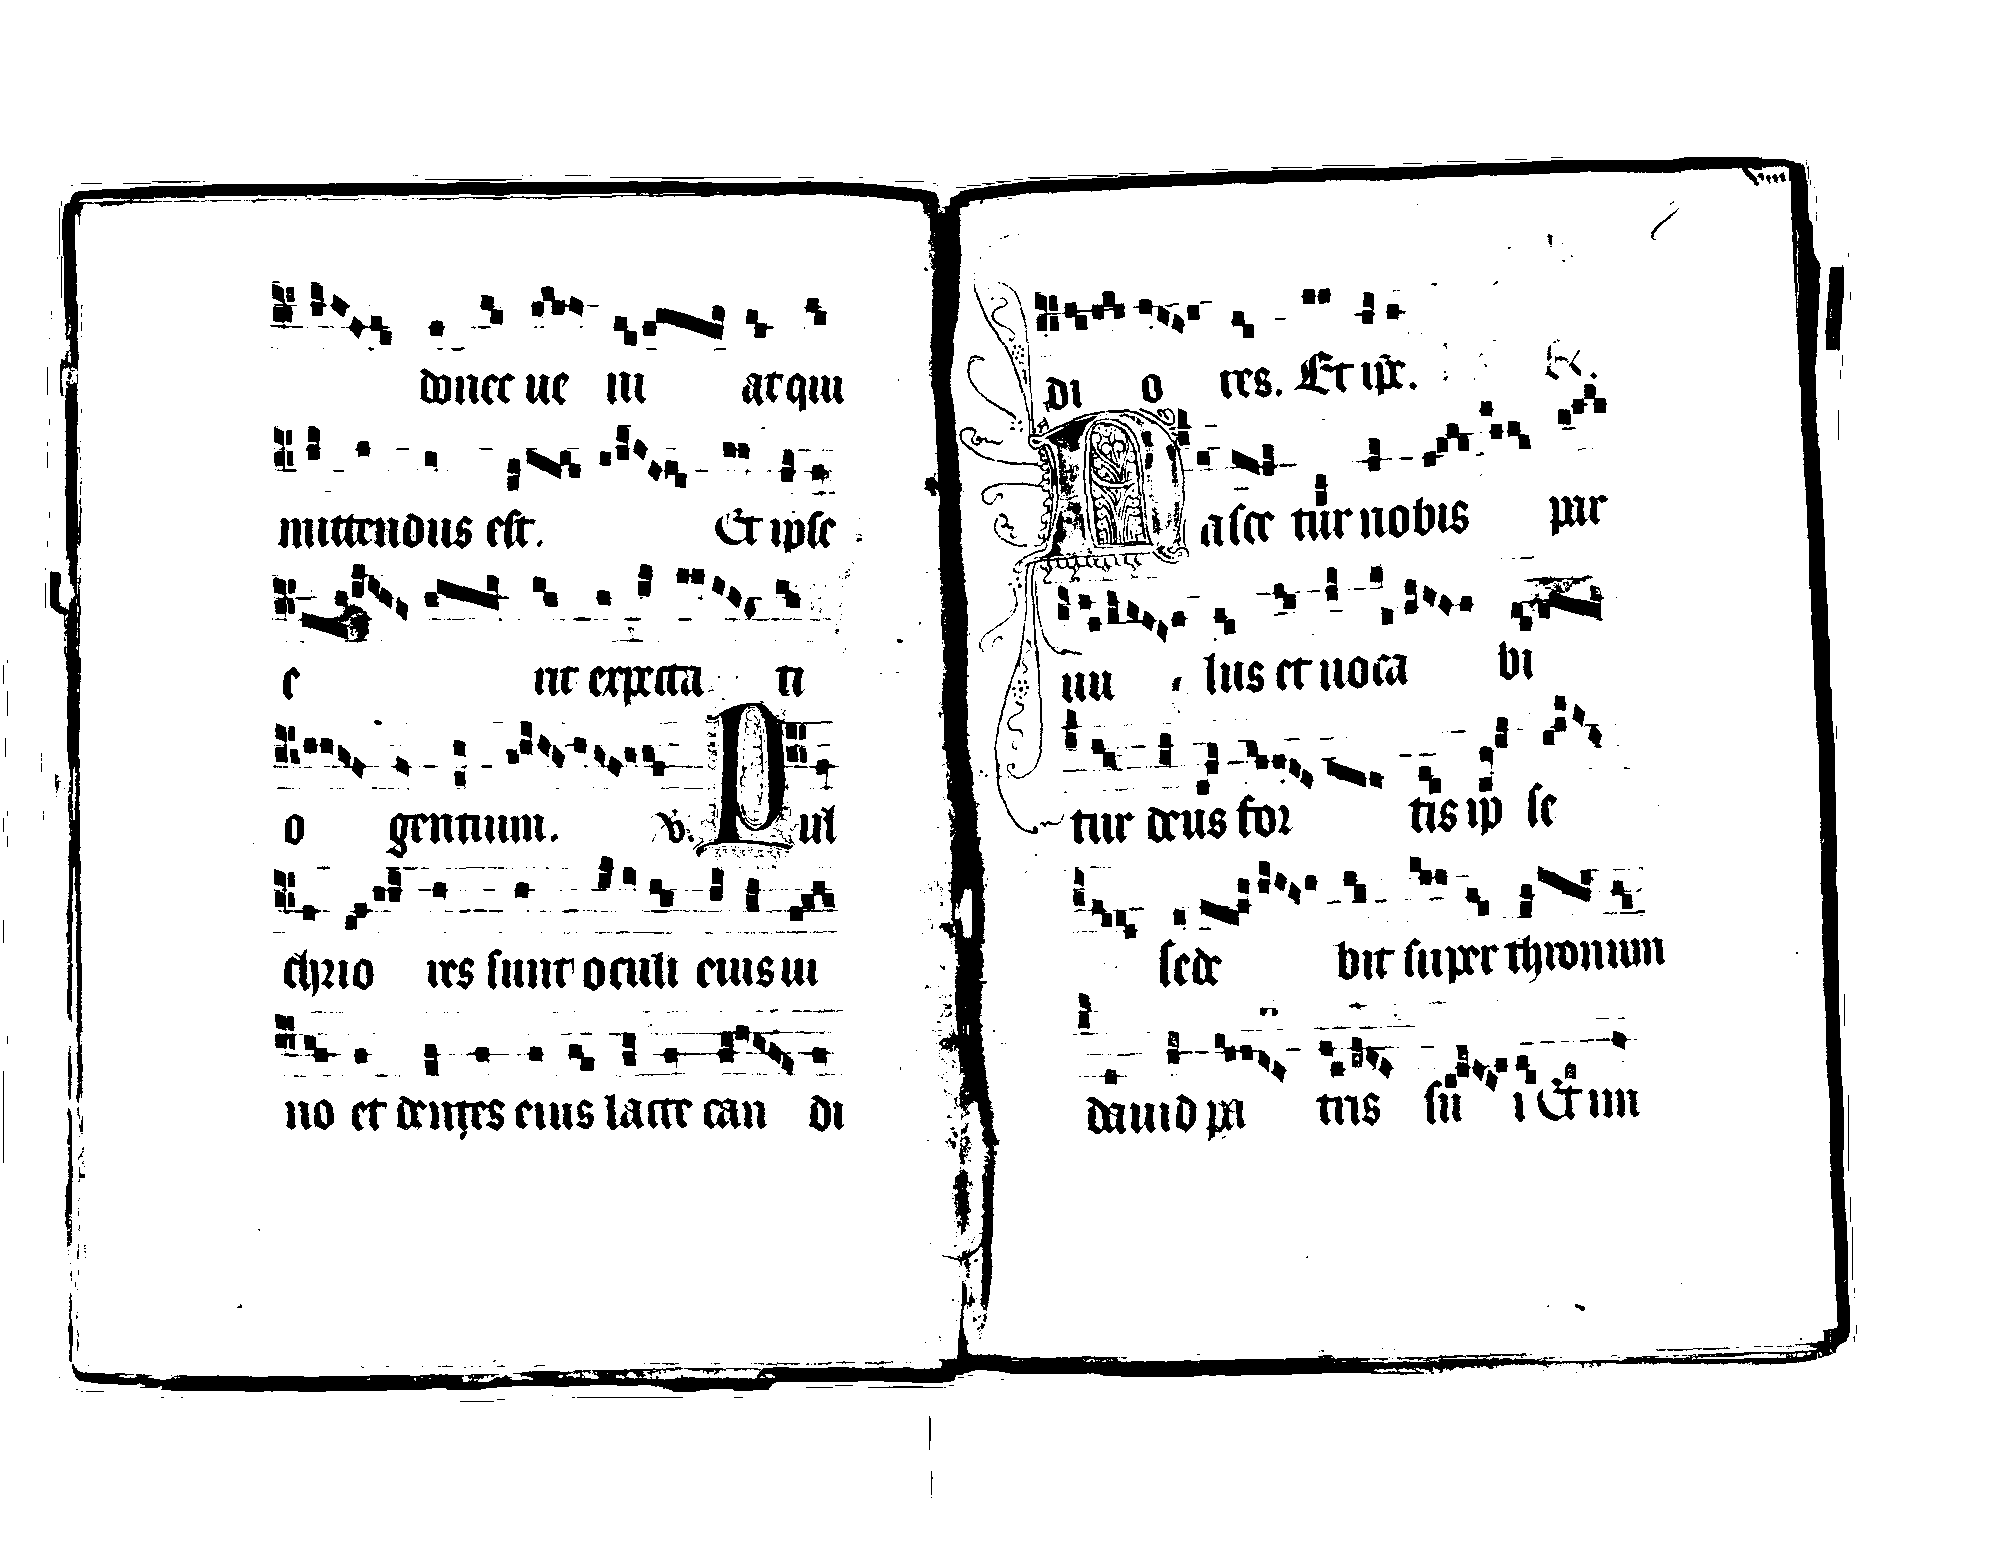 donec ue ni at qui
mittendus est. Et ipse
e rit expecta ti
o gentium. v. Pul
chrio res sunt oculi eius ui
no et dentes eius lacte can di
di o res. Et ipse. R.
Nasce tur nobis par
uu lus et uoca bi
tur deus for tis ip se
sede bit super thronum
dauid pa tris su i Et im